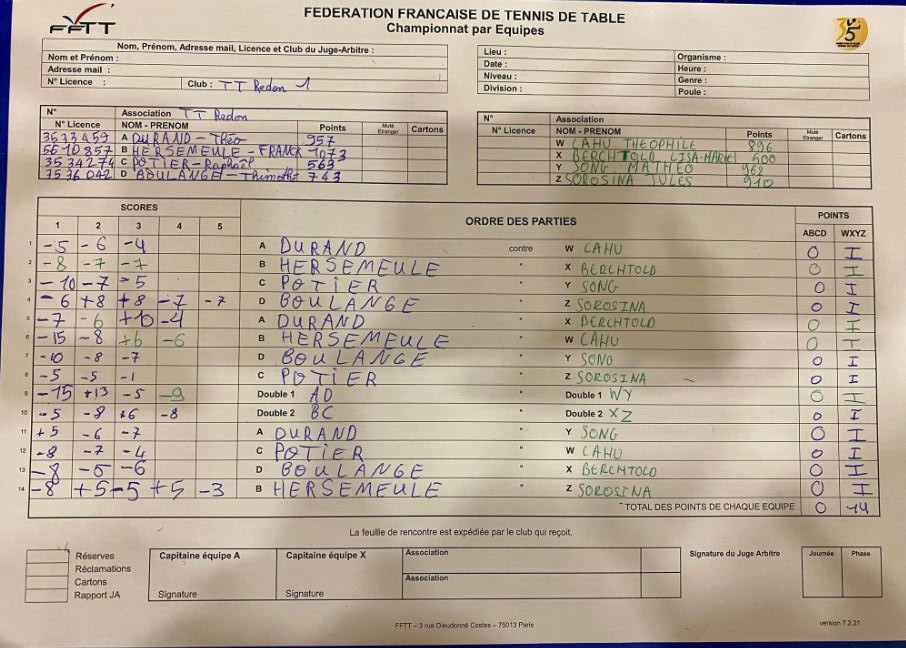 FFTT
FEDERATION FRANCAISE DE TENNIS DE TABLE
Championnat par Equipes
35
Nom, Prénom, Adresse mail, Licence et Club du Juge-Arbitre :
Nom et Prénom :
Adresse mail :
N° Licence : Club : TT Redon 1
Lieu : Organisme :
Date : Heure :
Niveau : Genre :
Division : Poule :
N° Association TT Redon
N° Licence NOM - PRENOM Points Muté Etranger Cartons
3533459 A DURAND - Théo 957
5610857 B HERSEMEULE - FRANCK 1073
3534274 C POTIER - Raphaël 563
3536042 D BOULANGE - Thimothé 743
N° Association
N° Licence NOM - PRENOM Points Muté Etranger Cartons
W CAHU THEOPHILE 896
X BERCHTOLD LISA-MARIE 500
Y SONG MATHEO 962
Z SOROSINA JULES 910
SCORES ORDRE DES PARTIES POINTS
1 2 3 4 5 ABCD WXYZ
1 -5 -6 -4 A DURAND contre W CAHU 0 I
2 -8 -7 -7 B HERSEMEULE " X BERCHTOLD 0 I
3 -10 -7 -5 C POTIER " Y SONG 0 I
4 -6 +8 +8 -7 -7 D BOULANGE " Z SOROSINA 0 I
5 -7 -6 +10 -4 A DURAND " X BERCHTOLD 0 I
6 -15 -8 +6 -6 B HERSEMEULE " W CAHU 0 I
7 -10 -8 -7 D BOULANGE " Y SONG 0 I
8 -5 -5 -1 C POTIER " Z SOROSINA 0 I
9 -15 +13 -5 -9 Double 1 AD " Double 1 WY 0 I
10 -5 -8 +6 -8 Double 2 BC " Double 2 XZ 0 I
11 +5 -6 -7 A DURAND " Y SONG 0 I
12 -8 -7 -4 C POTIER " W CAHU 0 I
13 -8 -5 -6 D BOULANGE " X BERCHTOLD 0 I
14 -8 +5 -5 +5 -3 B HERSEMEULE " Z SOROSINA 0 I
TOTAL DES POINTS DE CHAQUE EQUIPE 0 14
La feuille de rencontre est expédiée par le club qui reçoit.
Réserves
Réclamations
Cartons
Rapport JA
Capitaine équipe A
Signature
Capitaine équipe X
Signature
Association
Association
Signature du Juge Arbitre
Journée Phase
FFTT – 3 rue Dieudonné Costes – 75013 Paris
version 7.2.21